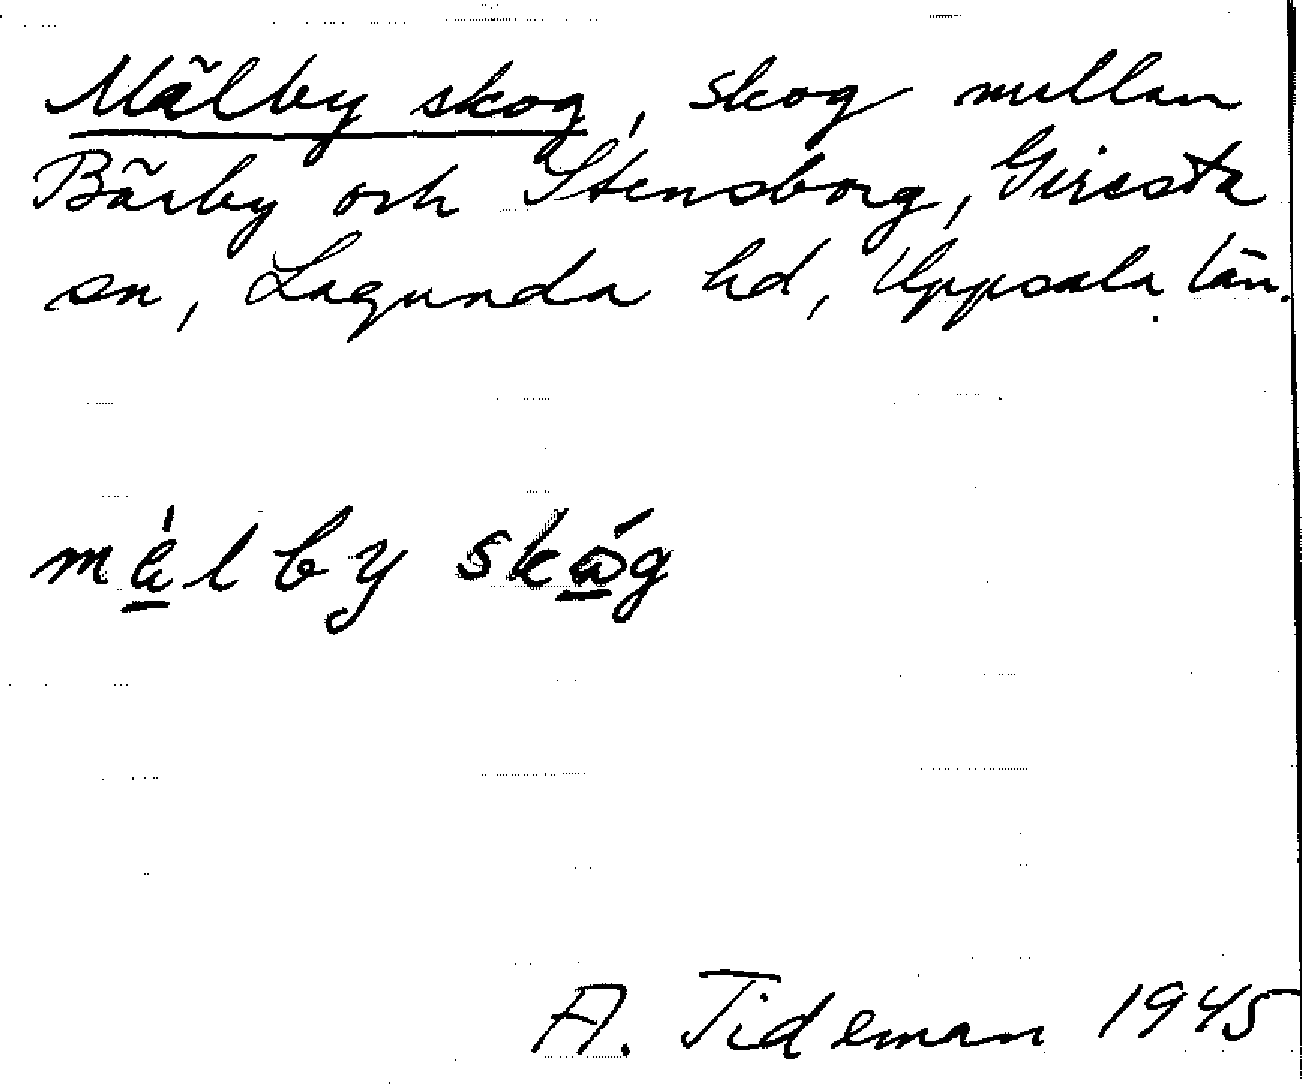 Mälby skog, skog mellan
Bärby och Stensborg, Giresta
sn, Lagunda hd, Uppsala län.
mälby skog
A. Tideman 1945